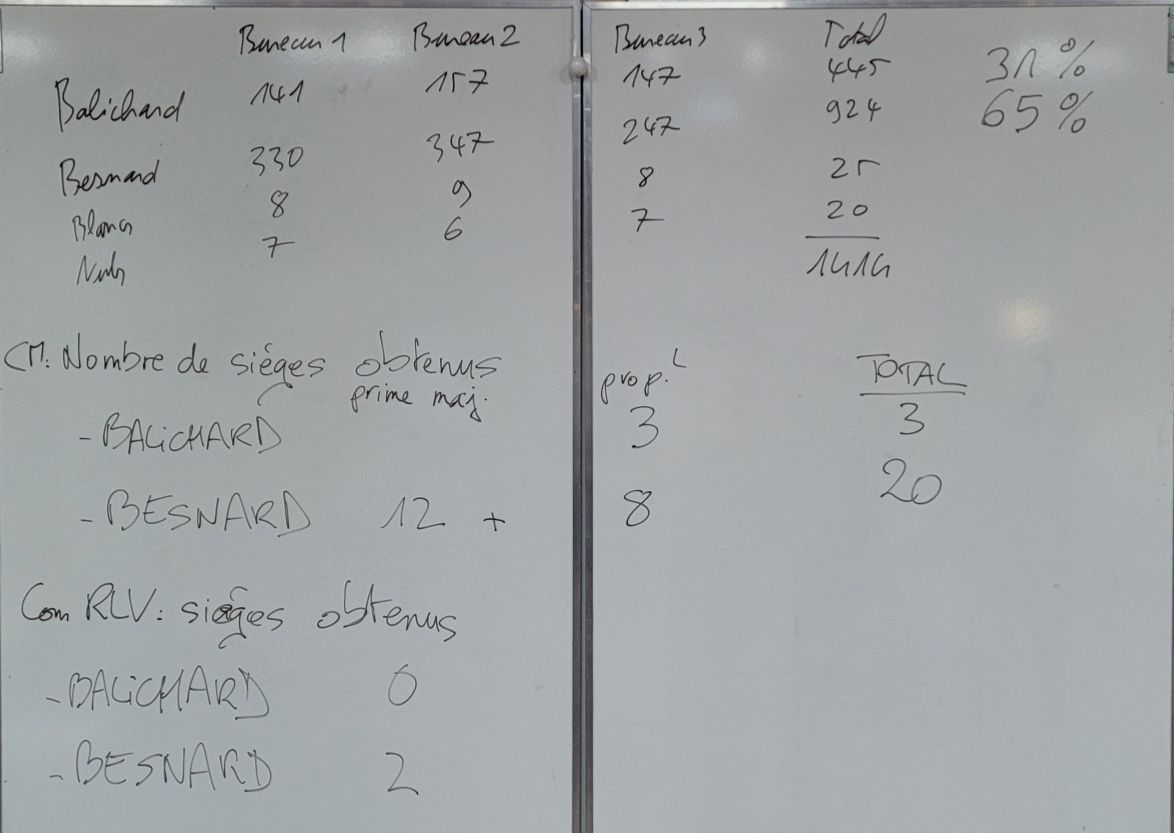 Bureau 1 Bureau 2 Bureau 3 Total
Balichard 141 157 147 445 31 %
Besnard 330 347 247 924 65 %
Blancs 8 9 8 25
Nuls 7 6 7 20
1414
CM: Nombre de sièges obtenus
prime maj. prop.L TOTAL
- BALiCHARD 3 3
- BESNARD 12 + 8 20
Com RLV: sièges obtenus
- BALiCHARD 0
- BESNARD 2